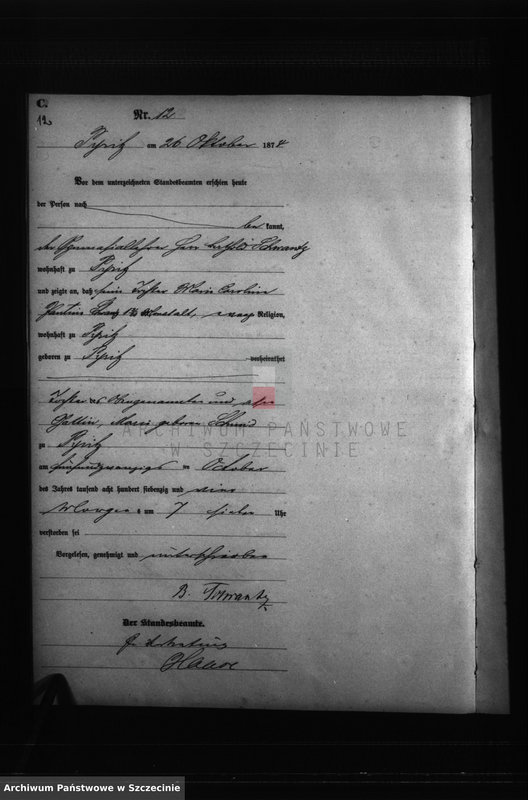 C.
Nr. 12
12
Pyritz am 26 Oktober 1874
Vor dem unterzeichneten Standesbeamten erschien heute
der Person nach
be kannt,
der Gymnasiallehrer Herr Schwantz
wohnhaft zu Pyritz
und zeigte an, daß seine Tochter Marie Caroline
alt, evang Religion,
wohnhaft zu Pyritz
geboren zu Pyritz verheirathet
Tochter des Vorgenannten und
Gattin, Marie geborene
zu Pyritz
am fünfundzwanzigsten October
des Jahres tausend acht hundert siebenzig und vier
Morgens um 7 sieben Uhr
verstorben sei
Vorgelesen, genehmigt und unterschrieben
B. Schwantz
Der Standesbeamte.
Haase
ARCHIWUM PAŃSTWOWE
W SZCZECINIE
Archiwum Państwowe w Szczecinie